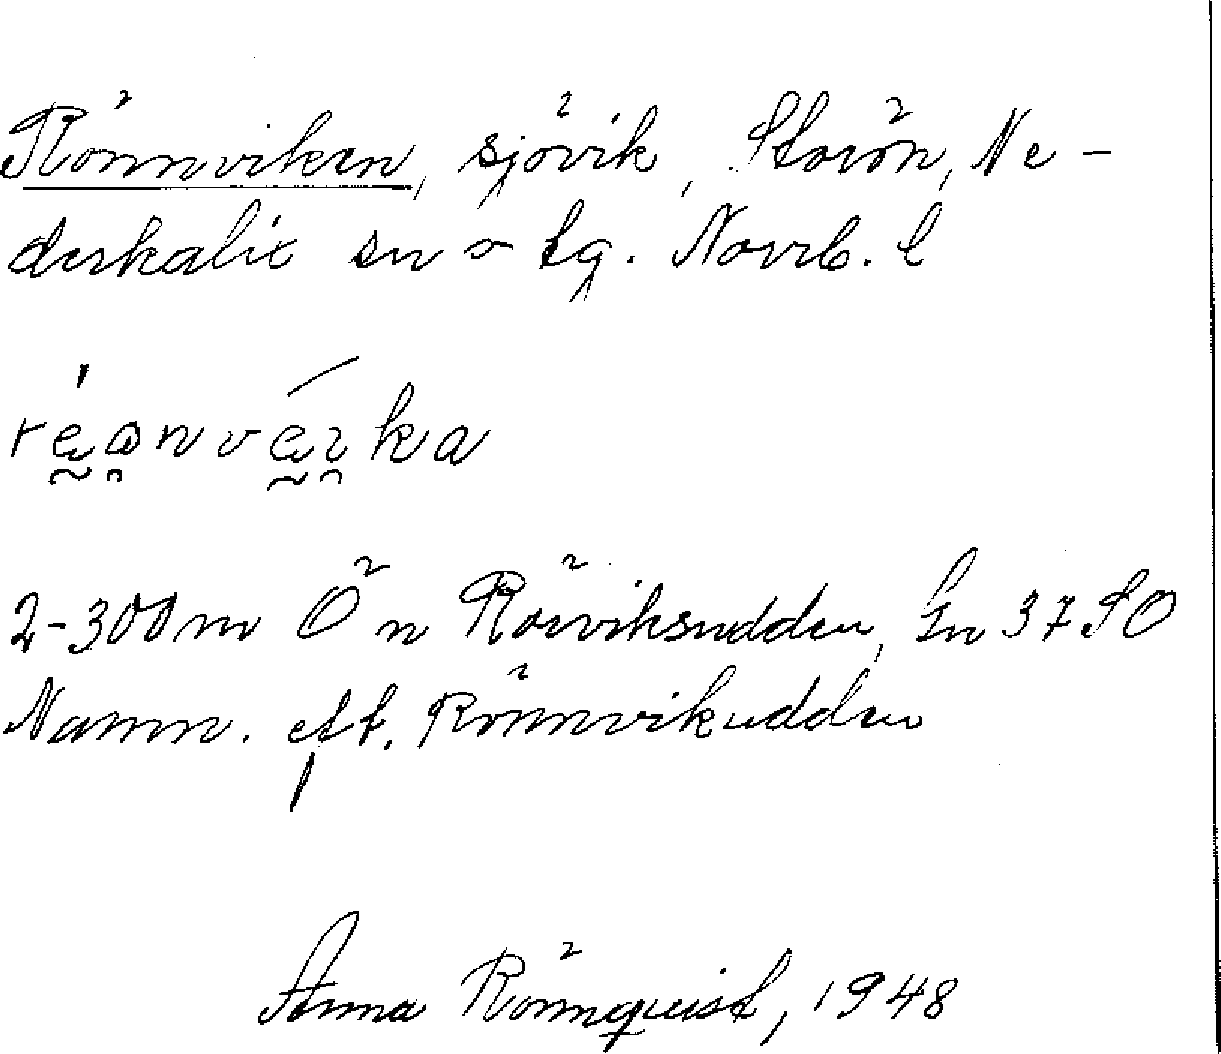 Rönnviken, sjövik, Storön, Ne-
derkalix sn o tg. Norrb. l
réanvéika
2-300 m Ö n Rörviksudden, Ln 37 SO
Namn. eft. Rönnvikudden
Anna Rönnquist, 1948